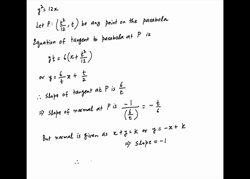 y²=12x
Let P: (t²/12, t) be any point on the parabola
Equation of tangent to parabola at P is
yt = 6(x + t²/12)
or y = 6/t x + t/2
∴ Slope of tangent at P is 6/t
⇒ Slope of normal at P is -1/(6/t) = -t/6
But normal is given as x+y=k or y=-x+k
⇒ Slope = -1
∴